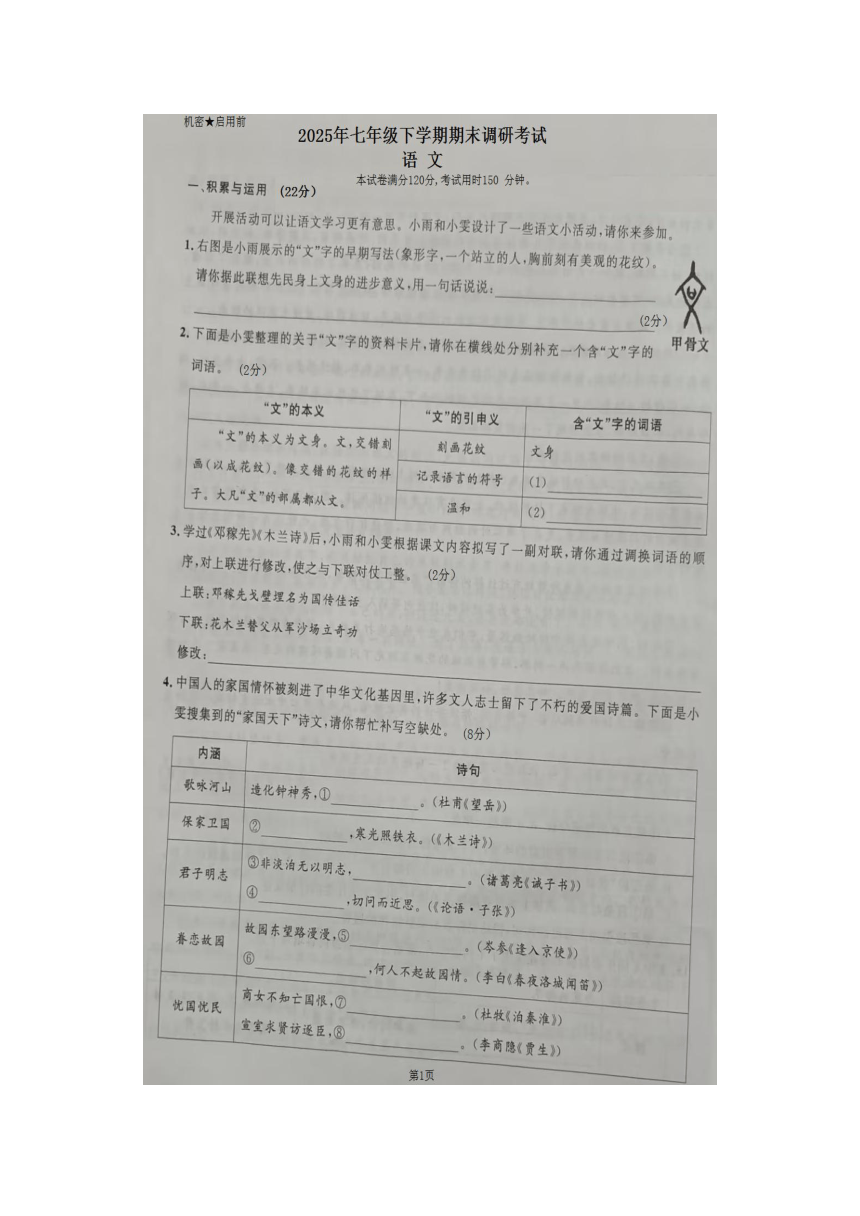 机密★启用前
2025年七年级下学期期末调研考试
语 文
本试卷满分120分,考试用时150 分钟。
一、积累与运用 (22分)
开展活动可以让语文学习更有意思。小雨和小雯设计了一些语文小活动,请你来参加。
1.右图是小雨展示的“文”字的早期写法(象形字,一个站立的人,胸前刻有美观的花纹)。
请你据此联想先民身上文身的进步意义,用一句话说说:
(2分)
甲骨文
2.下面是小雯整理的关于“文”字的资料卡片,请你在横线处分别补充一个含“文”字的
词语。 (2分)
“文”的本义 “文”的引申义 含“文”字的词语
“文”的本义为文身。文,交错刻
画(以成花纹)。像交错的花纹的样
子。大凡“文”的部属都从文。
刻画花纹 文身
记录语言的符号 (1)
温和 (2)
3.学过《邓稼先》《木兰诗》后,小雨和小雯根据课文内容拟写了一副对联,请你通过调换词语的顺
序,对上联进行修改,使之与下联对仗工整。 (2分)
上联:邓稼先戈壁埋名为国传佳话
下联:花木兰替父从军沙场立奇功
修改:
4.中国人的家国情怀被刻进了中华文化基因里,许多文人志士留下了不朽的爱国诗篇。下面是小
雯搜集到的“家国天下”诗文,请你帮忙补写空缺处。 (8分)
内涵 诗句
歌咏河山 造化钟神秀,① 。(杜甫《望岳》)
保家卫国 ② ,寒光照铁衣。(《木兰诗》)
君子明志 ③非淡泊无以明志, 。(诸葛亮《诫子书》)
④ ,切问而近思。(《论语·子张》)
眷恋故园 故园东望路漫漫,⑤ 。(岑参《逢入京使》)
⑥ ,何人不起故园情。(李白《春夜洛城闻笛》)
忧国忧民 商女不知亡国恨,⑦ 。(杜牧《泊秦淮》)
宣室求贤访逐臣,⑧ 。(李商隐《贾生》)
第1页